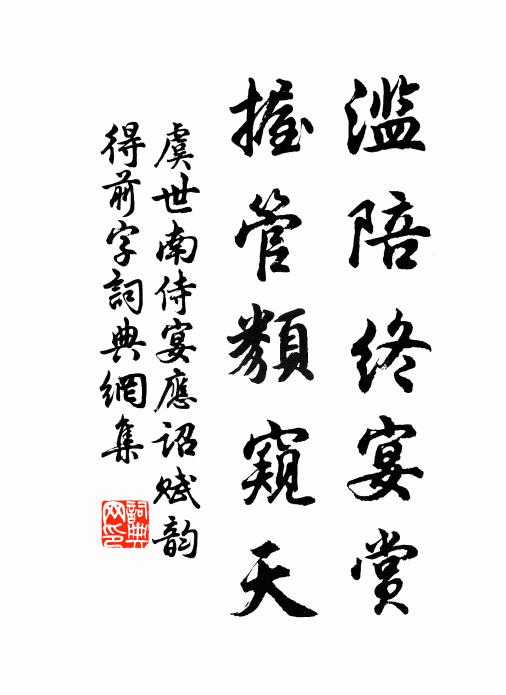 滥陪终宴赏
握管類窺天
虞世南侍宴應詔賦韵
得前字詞典網集
詞典网印